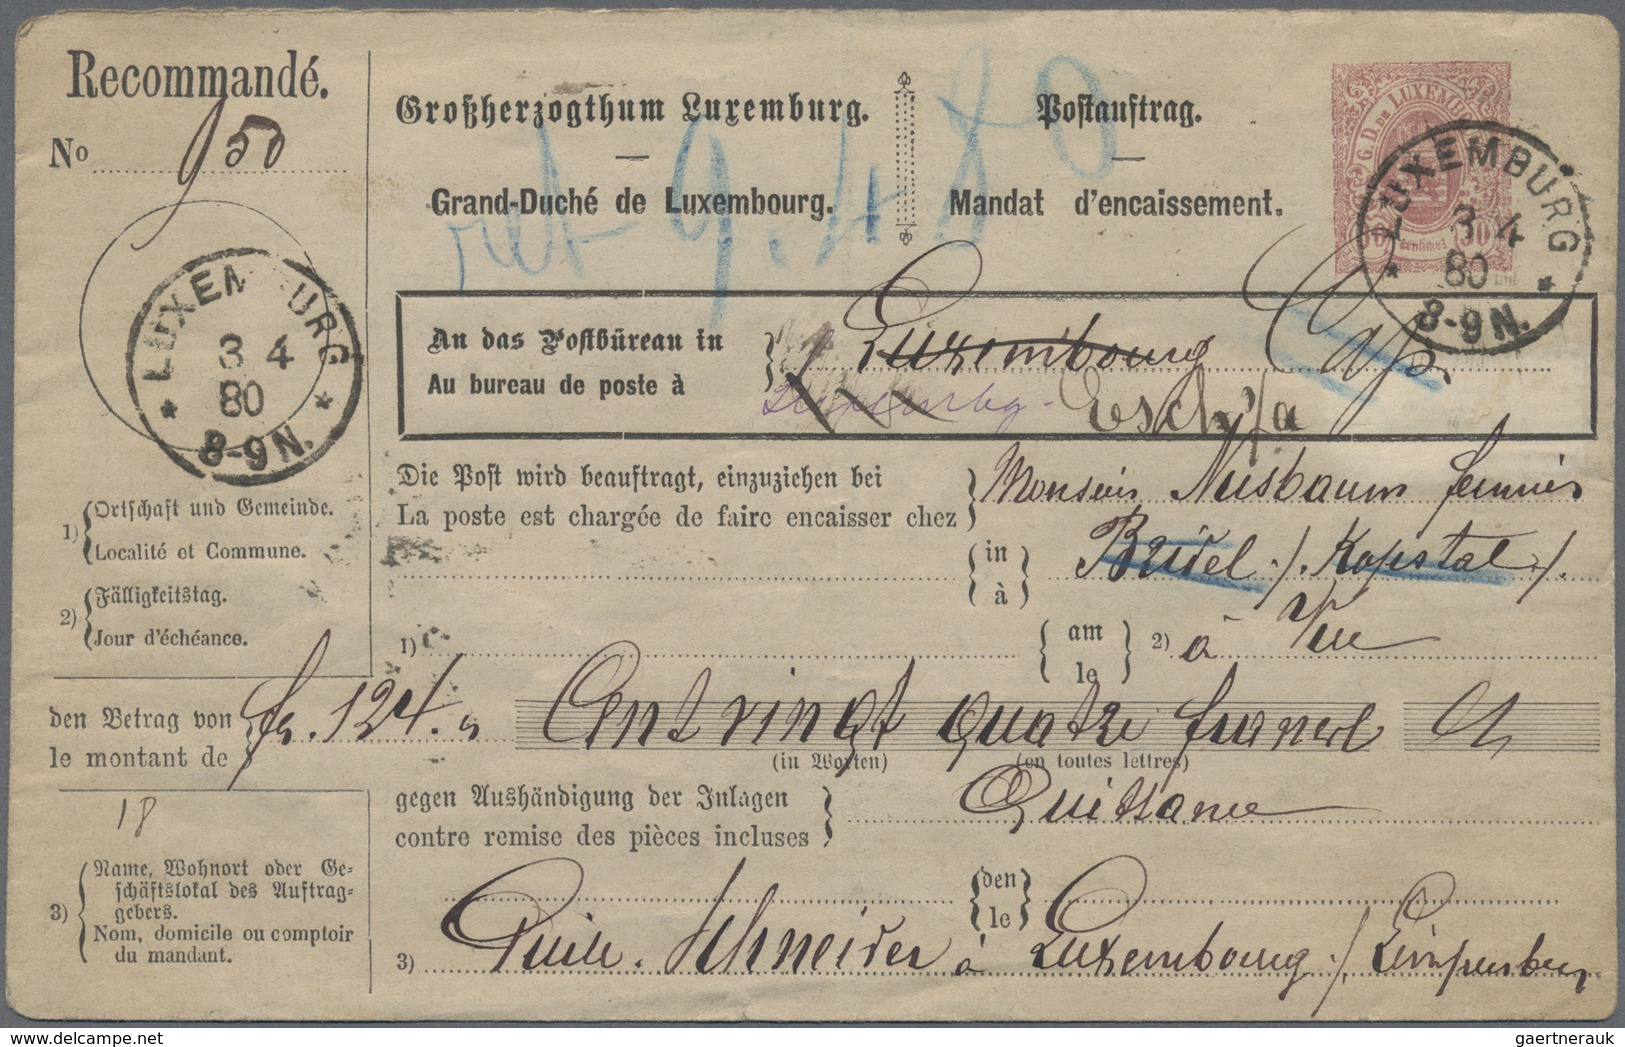 Recommandé.
No 950
Großherzogthum Luxemburg.
Grand-Duché de Luxembourg.
Postauftrag.
Mandat d'encaissement.
ret 9.4 80
G. D. DE LUXEMB
30 centimes 30
LUXEMBURG
3 4
80
8-9N.
LUXEMBURG
3 4
80
8-9N.
An das Postbüreau in
Au bureau de poste à
Luxembourg
Esch s/a
Die Post wird beauftragt, einzuziehen bei
La poste est chargée de faire encaisser chez
Monsieur Nusbaum
in
à
Bridel ./. Kopstal ./.
1) Ortschaft und Gemeinde.
Localité et Commune.
2) Fälligkeitstag.
Jour d'échéance.
1)
am
le
2) à Vue
den Betrag von
le montant de
fs. 124. "
Cent vingt quatre francs
(in Worten)
(en toutes lettres)
18
gegen Aushändigung der Inlagen
contre remise des pièces incluses
Quittance
den
le
3) Name, Wohnort oder Ge-
schäftslokal des Auftrag-
gebers.
Nom, domicile ou comptoir
du mandant.
3)
Schneider à Luxembourg ./. Limpersberg
gaertnerauk